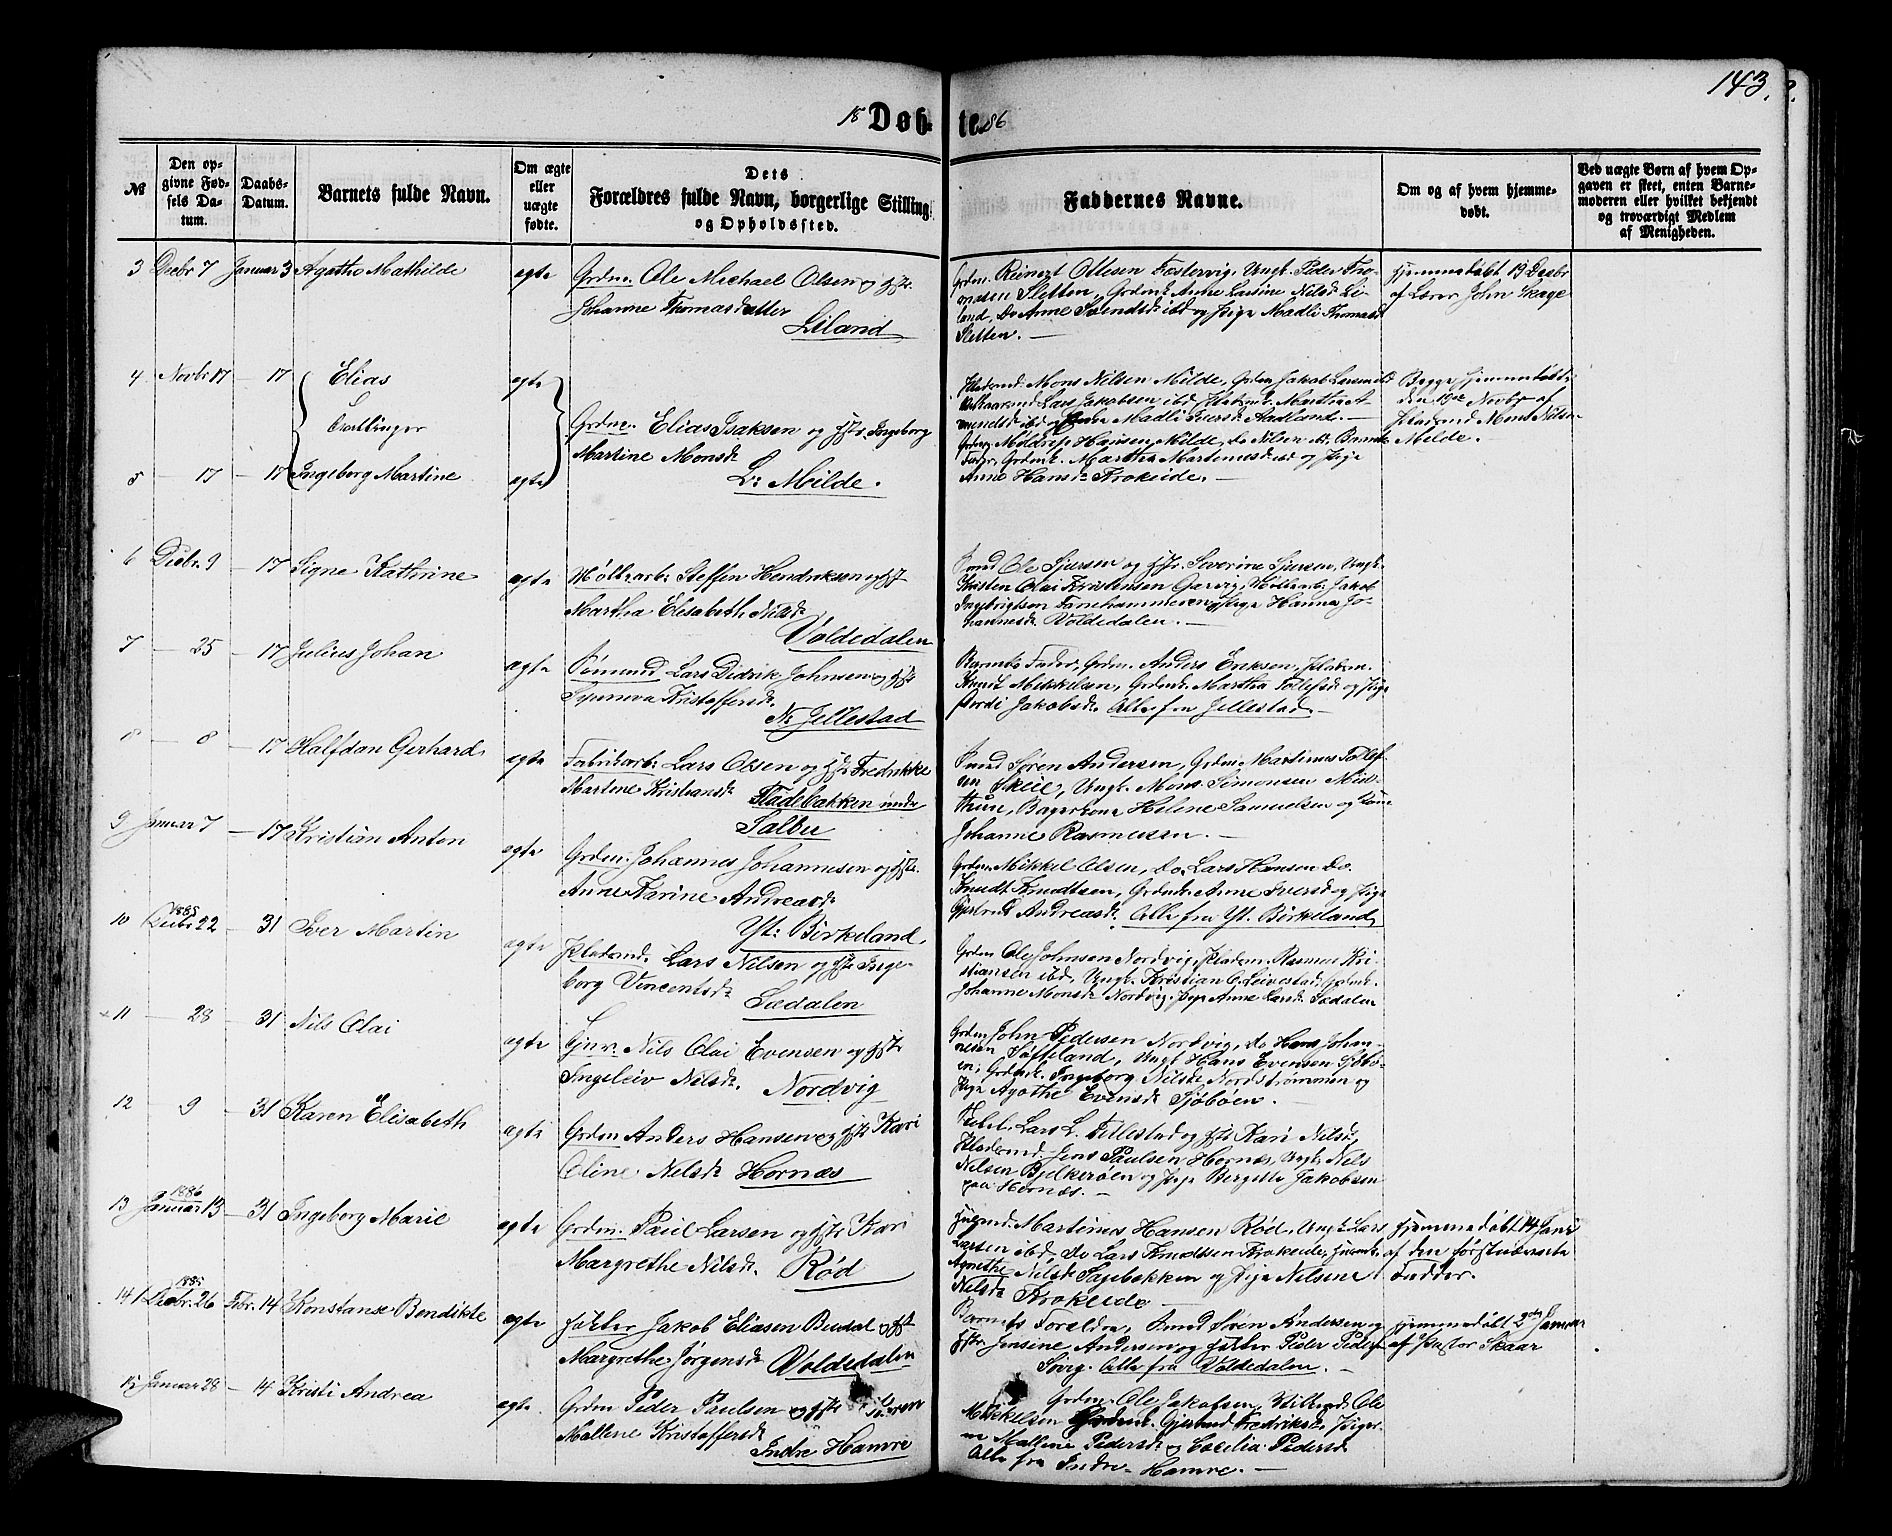 143.
18 Døbte. 86
№
Den opgivne Fødsels Datum.
Daabs-Datum.
Barnets fulde Navn.
Om ægte eller uægte fødte.
Dets Forældres fulde Navn, borgerlige Stilling og Opholdssted.
Faddernes Navne.
Om og af hvem hjemmedøbt.
Ved uægte Børn af hvem Opgaven er skeet, enten Barnemoderen eller hvilket bekjendt og troværdigt Medlem af Menigheden.
3 Decbr 7 Januar 3 Agathe Mathilde ægte Grdm. Ole Michael Olsen og Hstr
Johanne Thomasdatter
Liland
Grdm. Reinert Ottesen Fostervig, Ungk. Peder Tho-
masen Sletten, Grdmk. Anne Larsine Nilsd. Li-
land, Do Anne Svendsd. ibd og Pige Madli Thomasd
Sletten. —
Hjemmedøbt 19 Decbr
af Lærer John Skage
4 Novbr 17 — 17 Elias ægte
Tvillinger
Grdm. Elias Isaksen og Hstr. Ingeborg
Martine Monsd.
5 — 17 — 17 Ingeborg Martine ægte
L: Milde.
Pladsmd. Mons Nilsen Milde, Grdm Jakob Larsen
Lars Jakobsen ibd
Madli Iversd. Aadland. —
Hansen Milde, do Nilsen
Fader, Grdmk. Martha og Pige
Anne Hansd. Krokeide. —
Begge hjemmedøbt
den 19de Novbr af
Pladsmd Mons Nilsen
Milde.
6 Decbr. 9 — 17 Signe Kathrine ægte Møllearb: Steffen Hendriksen og Hst
Martha Elisabeth Nilsd.
Voldedalen
Smd Ole Sjursen og Hstr. Severine Sjursen, Ungk.
Kristen Olai Kristensen Garvig, Møllearb: Jakob
Ingebrigtsen Fanehammeren og Pige Hanna Jo-
hannesd. Voldedalen. —
7 — 25 — 17 Julius Johan ægte Sømand Lars Didrik Johnsen og Hstr
Synneva Kristoffersd.
N. Jellestad
Barnets Fader, Grdm. Anders Eriksen, Pladsm.
Knut Mikkelsen, Grdmk. Martha Tollefsd og Pige
Jakobsd. Alle fra Jellestad —
8 — 8 — 17 Halfdan Gerhard ægte Fabrikarb: Lars Olsen og Hstr Fredrikke
Martine Kristiansd. Fladebakken under
Salbu
Smd Søren Andersen, Grdm. Martinus Tollef-
sen Skeie, Ungk. Mons Simonsen Mid-
thun, Bagerkone Helene Samuelsen og Kone
Johanne Rasmussen. —
9 Januar 7 — 17 Kristian Anton ægte Grdm. Johannes Johannesen og Hstr.
Anne Karine Andreasd.
Yt: Birkeland
Grdm. Mikkel Olsen, do. Lars Hansen Do.
Knudt Knudtsen, Grdmk. Anne Iversd og Pige
Gjertrud Andreasd. Alle fra Yt. Birkeland
10 1885 Decbr 22 — 31 Iver Martin ægte Pladsmd. Lars Nilsen og Hstr Inge-
borg Vincentsd.
Sædalen
Grdm Ole Johnsen Nordvig, Pladsm. Rasmus Kri-
stiansen ibd, Ungk. Kristian O. Leivestad,
Johanne Monsd. Nordvig, Pige Anne Larsd. Sædalen
11 — 28 — 31 Nils Olai ægte Nils Olai Evensen og Hstr
Ingeleiv Nilsd. Nordvig
Grdm. John Pedersen Nordvig, do Hans Johan-
nesen Søfteland, Ungk Hans Evensen Sjøbø-
en, Grdmk. Ingeborg Nilsd. Nordstrømmen og
Pige Agathe Evensd. Sjøbøen. —
12 9 — 31 Karen Elisabeth ægte Grdm Anders Hansen og Hstr Kari
Oline Nilsd. Hornæs
Lars L. Titlestad og Hstr Kari Nilsd,
Pladsmd. Jens Paulsen Hornæs, Ungk. Nils
Nilsen Bjelkerøen og Pige Bergitte Jakobsen
paa Hornæs. —
13 1886 Januar 13 — 31 Ingeborg Marie ægte Grdm. Paul Larsen og Hstr Kari
Margrethe Nilsd. Rød
Martinus Hansen Rød, Ungk. Lars
Larsen ibd, do Lars Knudtsen Krokeide,
Agnethe Nilsd. Sagebakken og Pige Nilsine
Nilsd. Krokeide —
Hjemmedøbt 14 Janr
af den førstnævnte
Fadder.
14 1885 Decbr. 26 Febr. 14 Konstanse Bendikte ægte Jakob Eliasen Bendal og Hst
Margrethe Jørgensd. Voldedalen
Barnets Forældre, Smd Søren Andersen og
Hstr. Jensine Andersen og Peder
Alle fra Voldedalen. —
Hjemmedøbt 2den Januar
af Pastor Skaar
15 Januar 28 — 14 Kristi Andrea ægte. Grdm Peder Paulsen og Hstr Karen
Mallene Kristoffersd.
Indre Hamre
Grdm. Ole Jakobsen, Ole
Mikkelsen Gjertrud Fredriksd., Piger-
ne Mallene Pedersd. og Cecilia Pedersd
Alle fra Indre Hamre. —